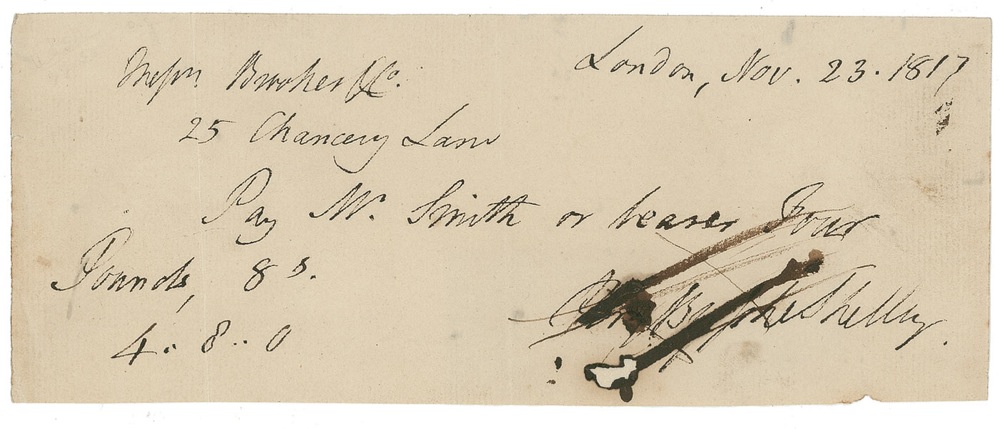 London, Nov. 23. 1817
Messrs. Brookes & Co.
25 Chancery Lane
Pay Mr. Smith or bearer Four
Pounds, 8s.
4. 8.. 0
Percy Bysshe Shelley.